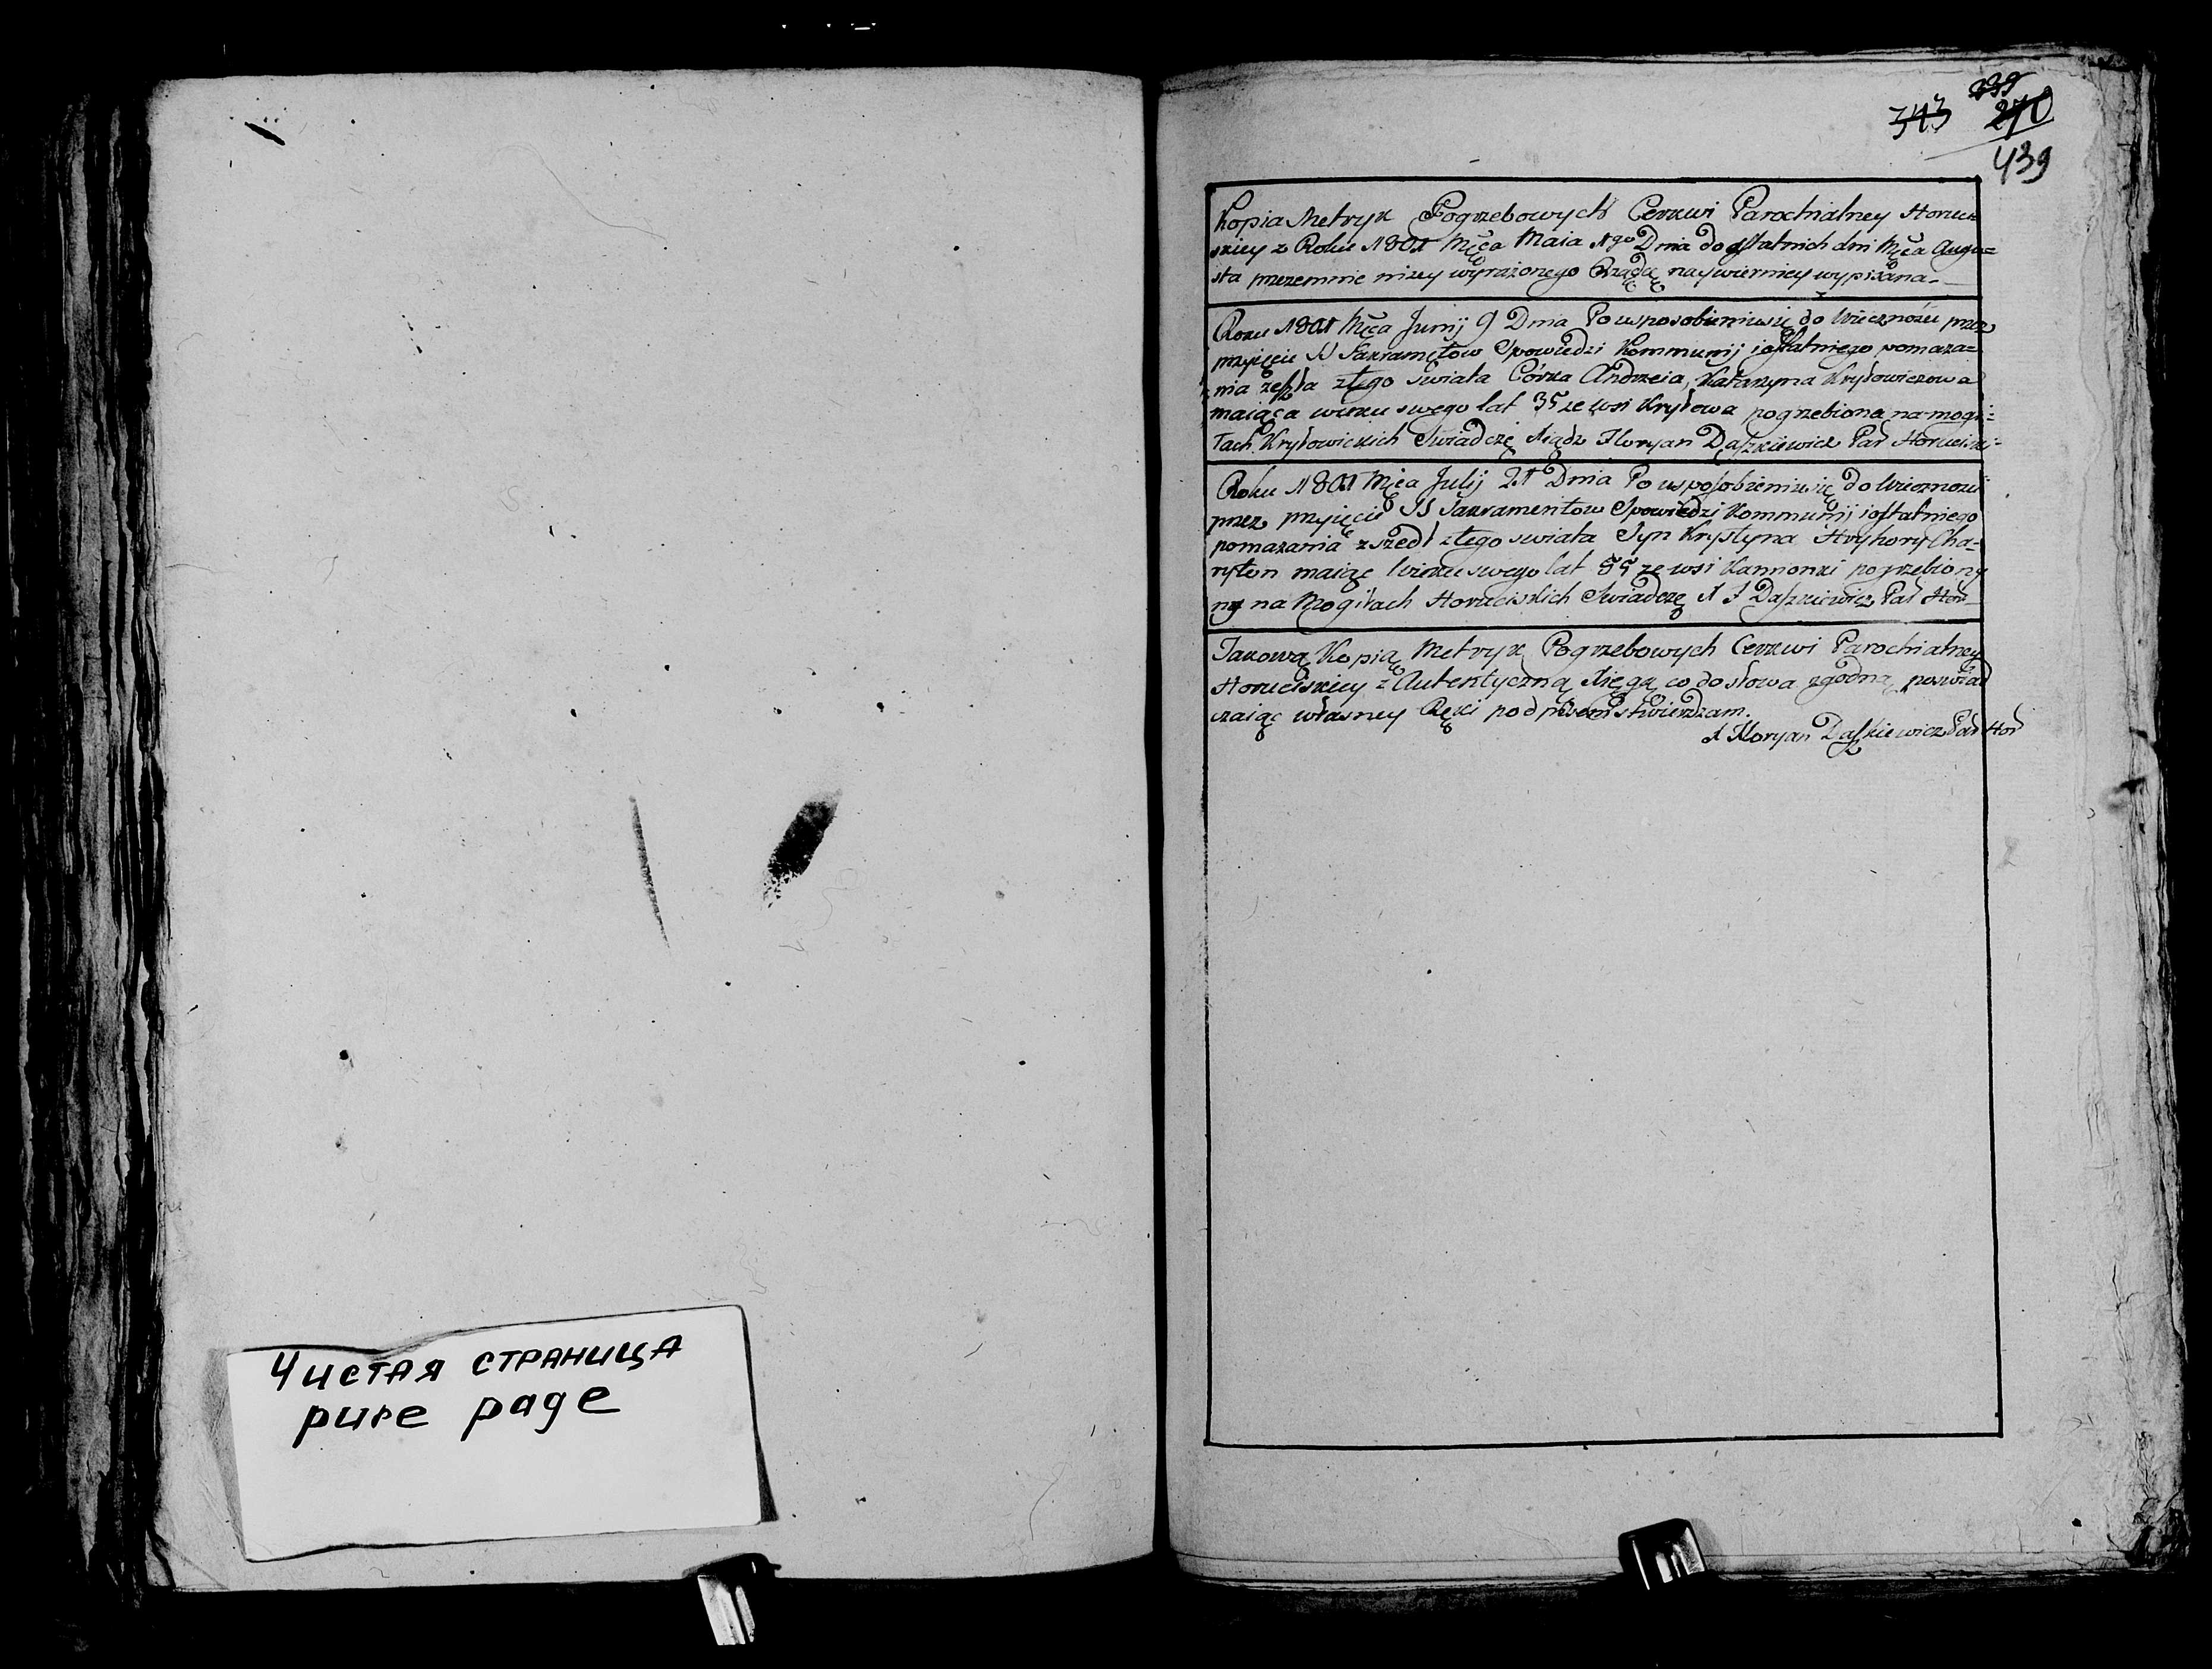 Чистая страница
pure page
343 339
270
439
Kopia Metryk Pogrzebowych Cerkwi Parochialney Horuci
skiey z Roku 1801 Mĉa Maia 1go Dnia do ostatnich dni Mĉa Augu=
sta przezemnie niżey wyrażonego Rządą naywierniey wypisana
Roku 1801 Mĉa Junij 9 Dnia Po usposobieniu się do Wieczności przez
przyięcie SS Sakramętow Spowiedzi Kommunij i ostatniego pomaza=
nia zeszła z tego świata Córka Andrzeia, Katarzyna Kryłowiczowa
maiąca wieku swego lat 35 ze wsi Kryłowa pogrzebiona na mogi=
łach Kryłowickich Świadczę Xiądz Floryan Daszkiewicz Par
Roku 1801 Mĉa Julij 21 Dnia Po usposobieniu się do Wieczności
przez przyięcie SS Sakramentow Spowiedzi Kommunij i ostatniego
pomazania zszedł z tego swiata Syn Krystyna Hryhory Cha=
ryton maiąc Wieku swego lat 55 ze wsi Kamionki pogrzebiony
ny na Mogiłach Horuciskich Swiadczę X F Daszkiewicz Par Hor
Takową Kopią Metryk Pogrzebowych Cerkwi Parochialney
Horuciskiey z Autentyczną Xięgą co do słowa zgodną poswiad
czaiąc własney Ręki podpisem stwierdzam.
X Floryan Daszkiewicz Par Hor